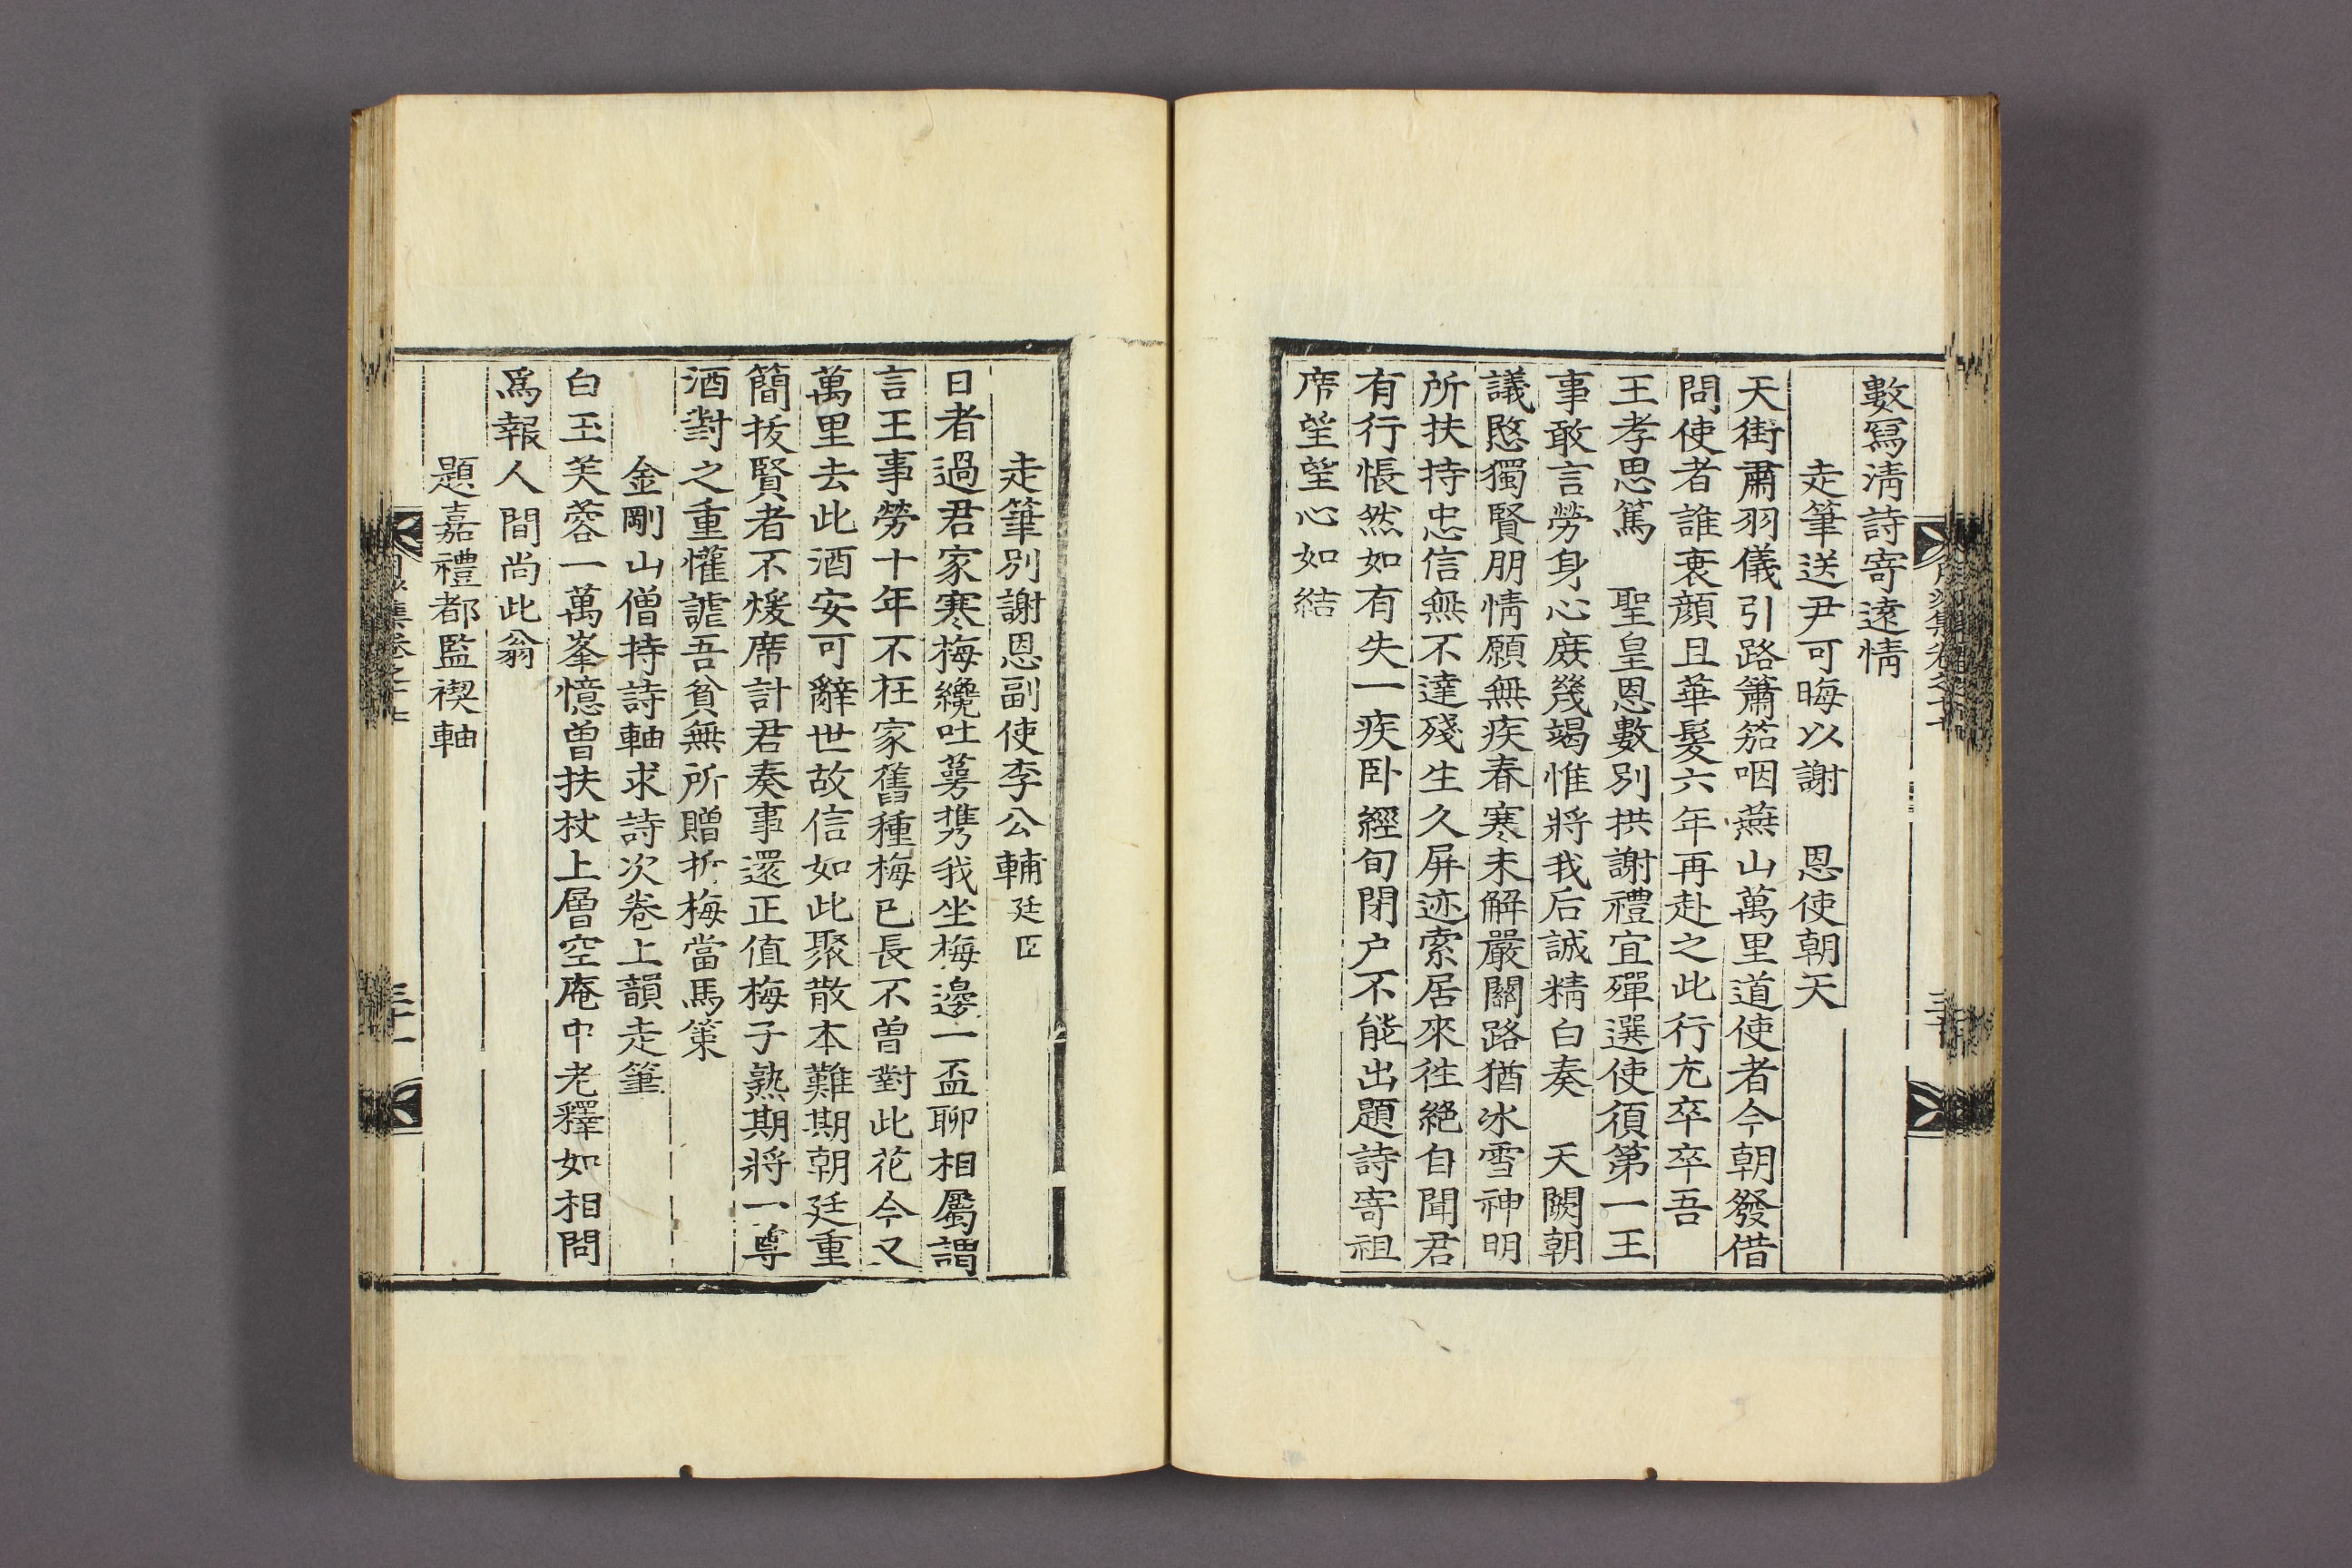 數寫淸詩寄遠情
走筆送尹可晦以謝 恩使朝天
天街肅羽儀引路簫笳咽燕山萬里道使者今朝發借
問使者誰衰顔且華髮六年再赴之此行尤卒卒吾
王孝思篤 聖皇恩數別拱謝禮宜殫選使須第一王
事敢言勞身心庻幾竭惟將我后誠精白奏 天闕朝
議愍獨賢朋情願無疾春寒未解嚴關路猶冰雪神明
所扶持忠信無不達殘生久屏迹索居來徃絶自聞君
有行悵然如有失一疾卧經旬閉户不能出題詩寄祖
席望望心如結
走筆別謝恩副使李公輔廷臣
日者過君家寒梅纔吐萼携我坐梅邊一盃聊相屬謂
言王事勞十年不在家舊種梅已長不曾對此花今又
萬里去此酒安可辭世故信如此聚散本難期朝廷重
簡拔賢者不煖席計君奏事還正值梅子熟期將一尊
酒對之重懽謔吾貧無所贈折梅當馬策
金剛山僧持詩軸求詩次卷上韻走筆
白玉芙蓉一萬峯憶曾扶杖上層空庵中老釋如相問
爲報人間尚此翁
題嘉禮都監禊軸